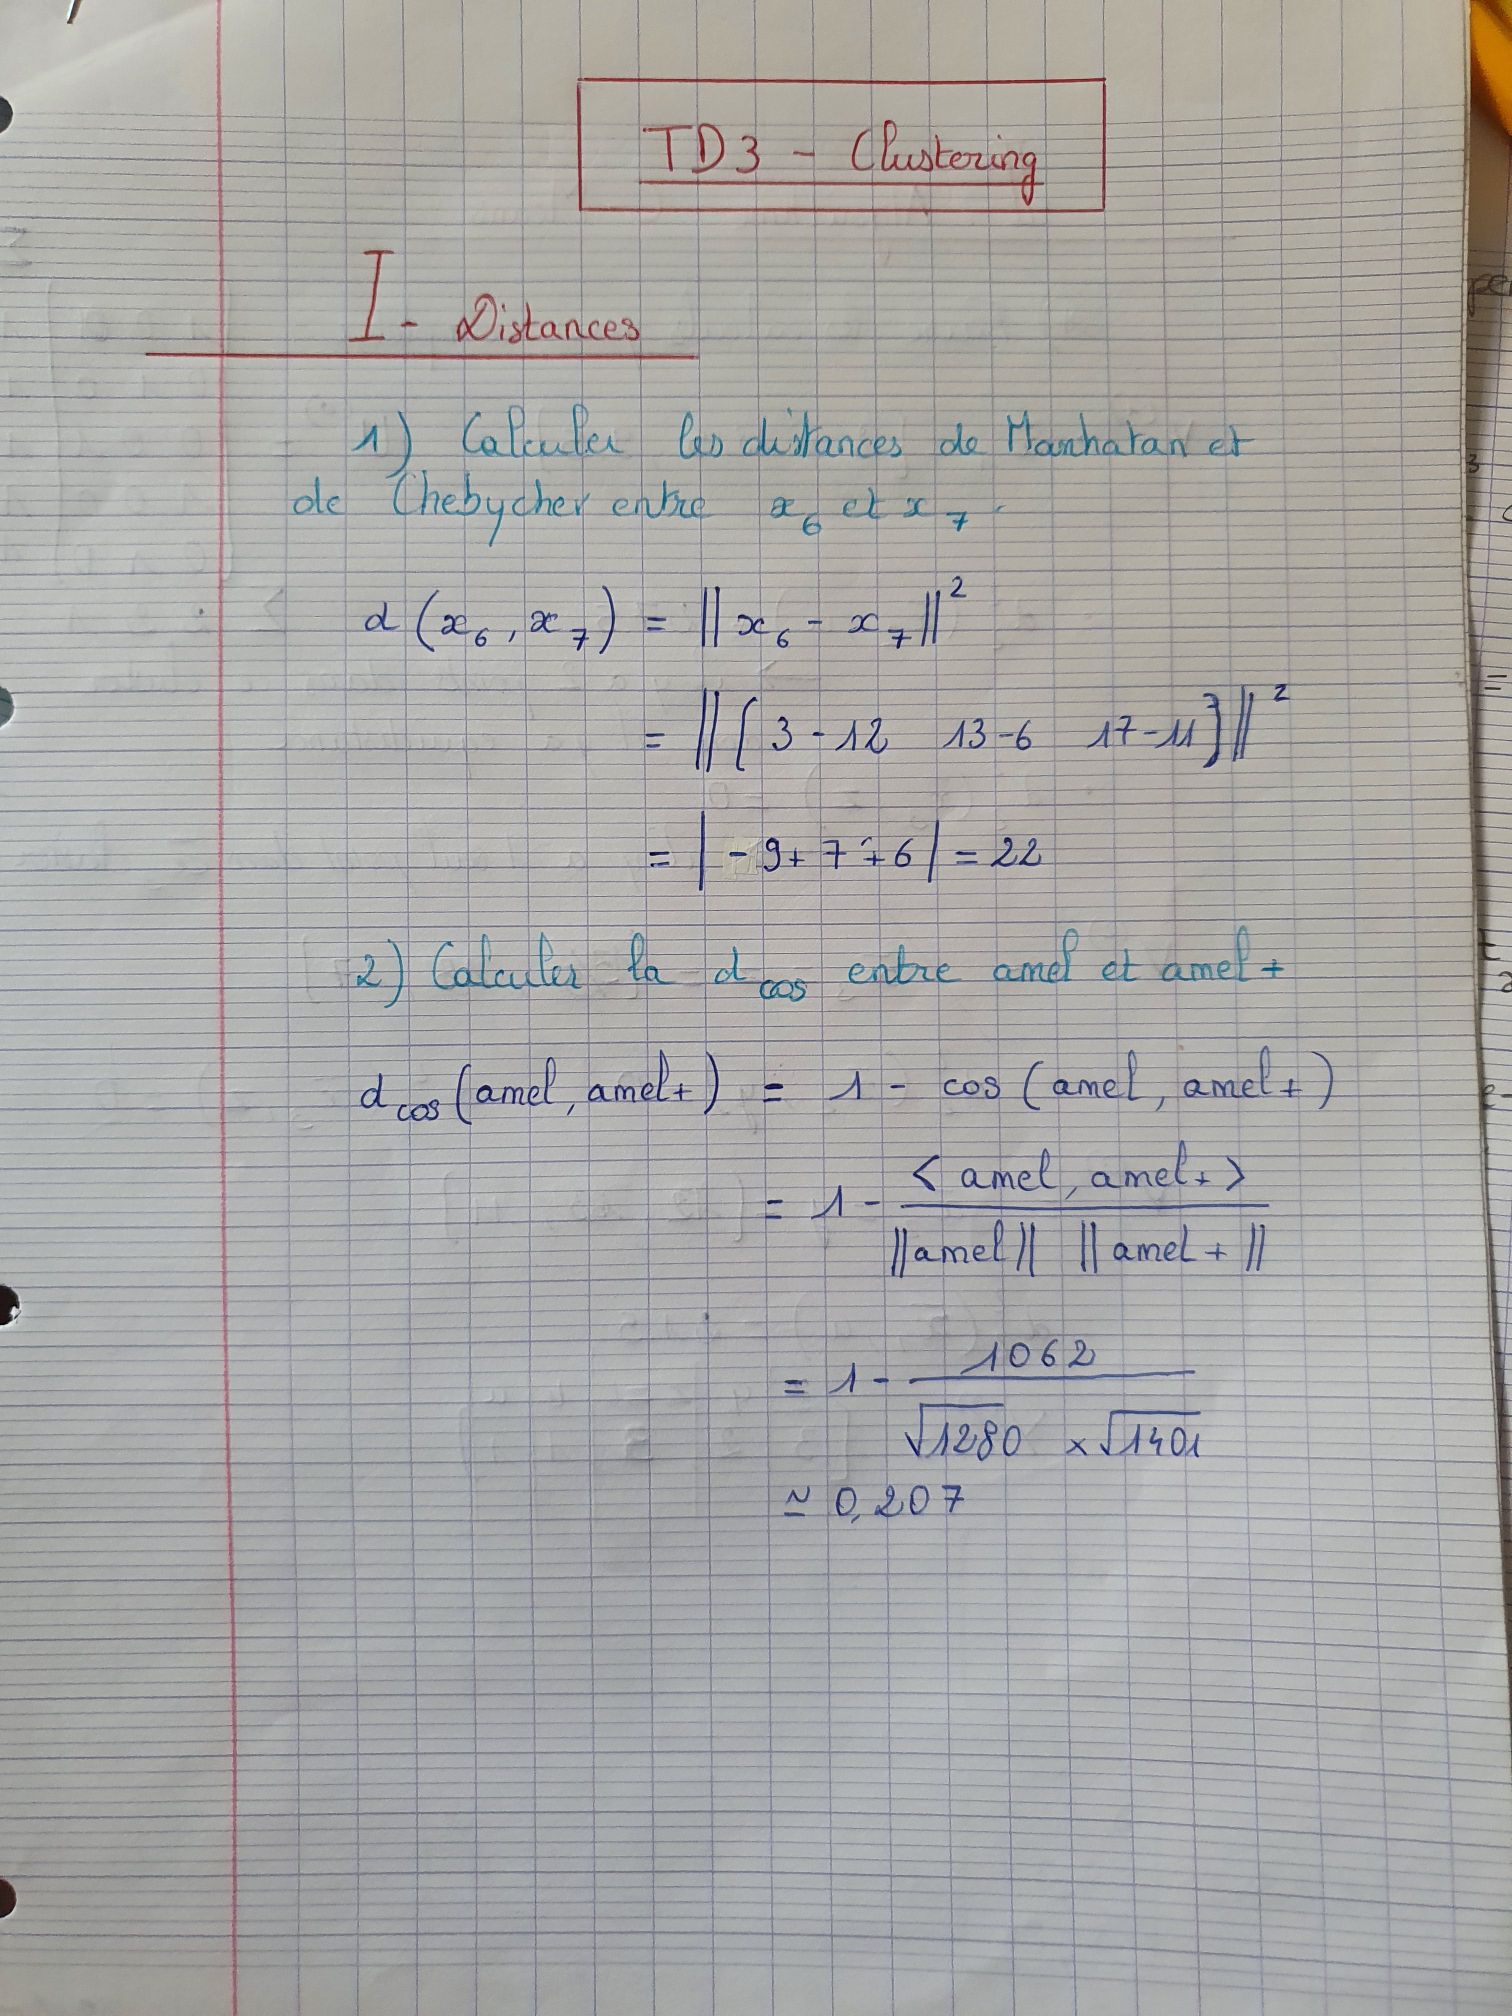 TD3 - Clustering
I - Distances
1) Calculer les distances de Manhatan et
de Chebycher entre x₆ et x₇.
d(x₆, x₇) = ||x₆ - x₇||²
= ||[3-12 13-6 17-11]||²
= |-9+7+6| = 22
2) Calculer la d_cos entre amel et amel+
d_cos(amel, amel+) = 1 - cos(amel, amel+)
= 1 - <amel, amel+> / ||amel|| ||amel+||
= 1 - 1062 / √1280 × √1401
≃ 0,207